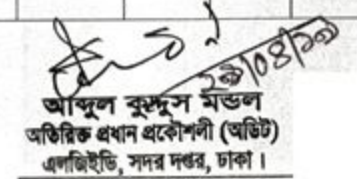 আব্দুল কুদ্দুস মন্ডল
অতিরিক্ত প্রধান প্রকৌশলী (অডিট)
এলজিইডি, সদর দপ্তর, ঢাকা।